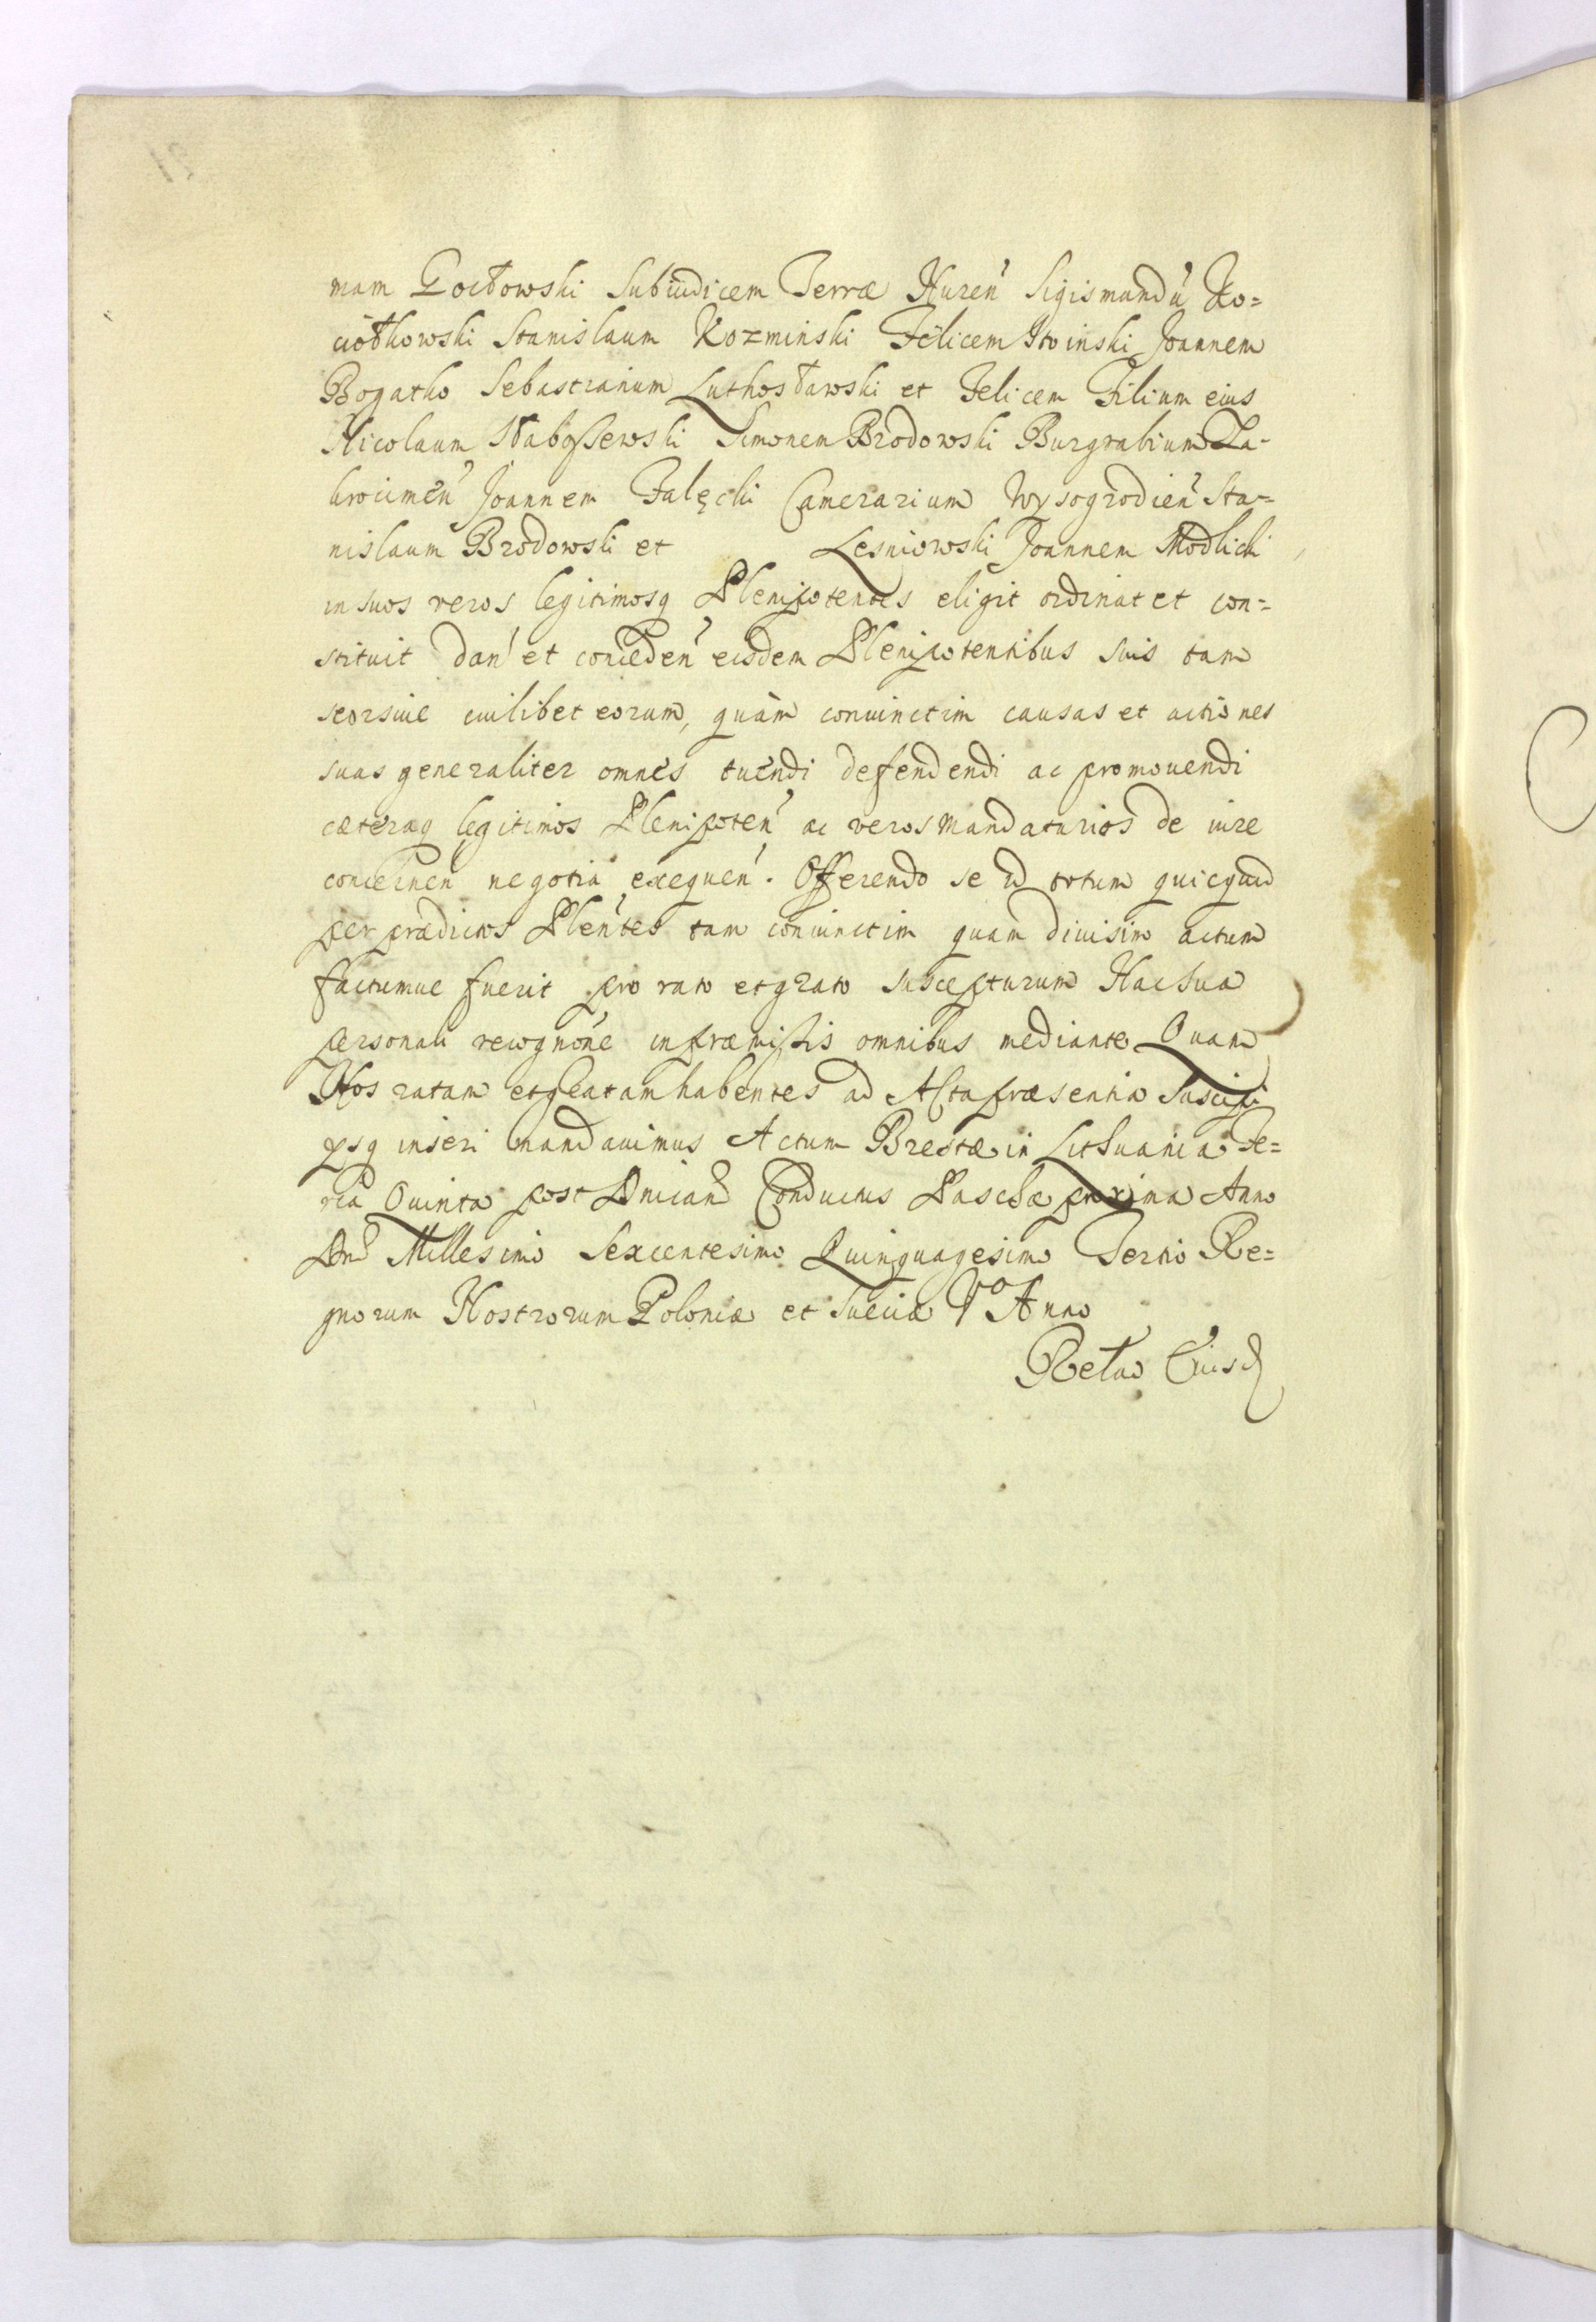 mam Gocłowski Subiudicem Terræ Nureń Sigismundũ Ko=
ciołkowski Stanislaum Kozminski Felicem Iłwinski Joannem
Bogatko Sebastianum Luthosławski et Felicem Filium eius
Nicolaum Słaboszewski Simonem Brodowski Burgrabium Za=
krocimeń Joannem Falęcki Camerarium Wysogrodień Sta=
nislaum Brodowski et Lesniowski Joannem Modlicki
in suos veros legitimosq Plenipotentes eligit ordinat et con=
stituit dań et concedeń eisdem Plenipotentibus suis tam
seorsive cuilibet eorum, quàm coniunctim causas et actiones
suas generaliter omnes tuendi defendendi ac promouendi
cæteraq legitimos Plenipoteń ac veros Mandatarios de iure
concerneń negotia exequeń. Offerendo se id totum quicquid
per prædictos Pleńtes tam coniunctim quam diuisim actum
factumue fuerit pro rato et grato suscepturum Hac sua
personali recognõne in præmissis omnibus mediante Quam
Nos ratam et gratam habentes ad Acta præsentia Suscipi
ysq inseri mandauimus Actum Brestæ in Lithuania Fe=
ria Quinta post Dnicam Conductus Paschæ proxima Anno
Dnĩ Millesimo Sexcentesimo Quinquagesimo Tertio Re=
gnorum Nostrorum Poloniæ et Sueciæ Vo Anno
Rela Eiusd